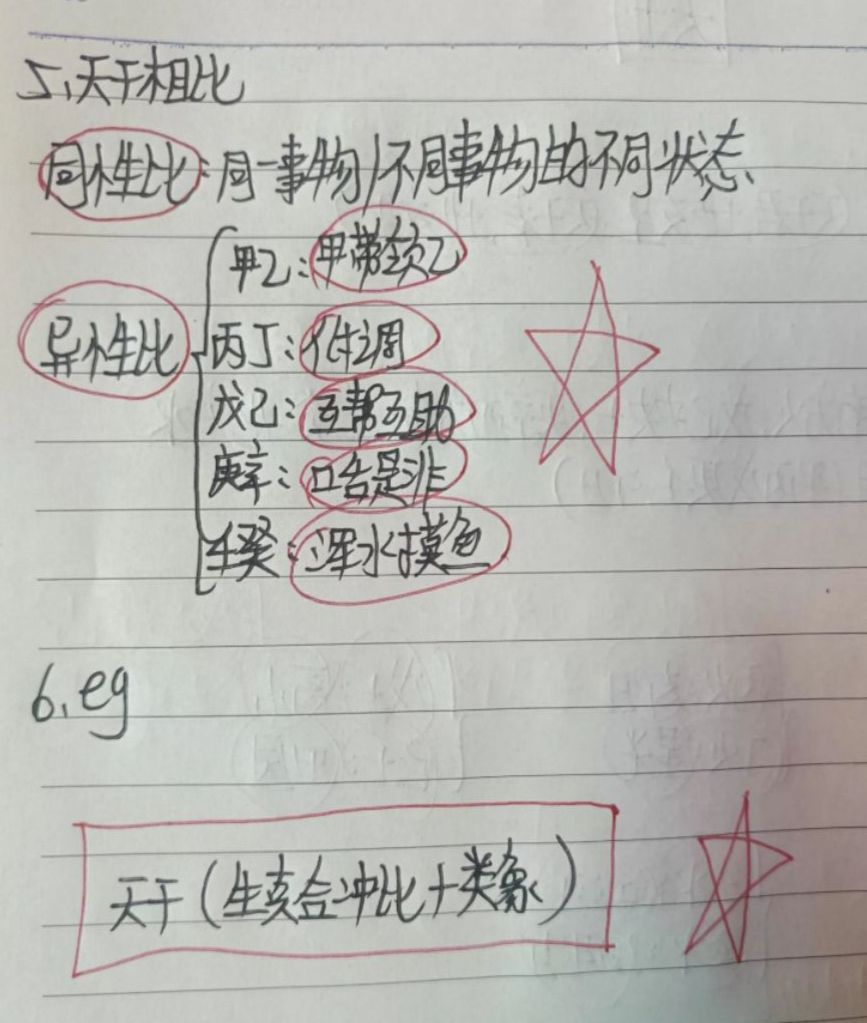 5、天干相比
同性比:同一事物/不同事物的不同状态
甲乙:甲带领乙
异性比
丙丁:低调
戊己:互帮互助
庚辛:口舌是非
壬癸:浑水摸鱼
6、eg
天干(生克合冲比+类象)